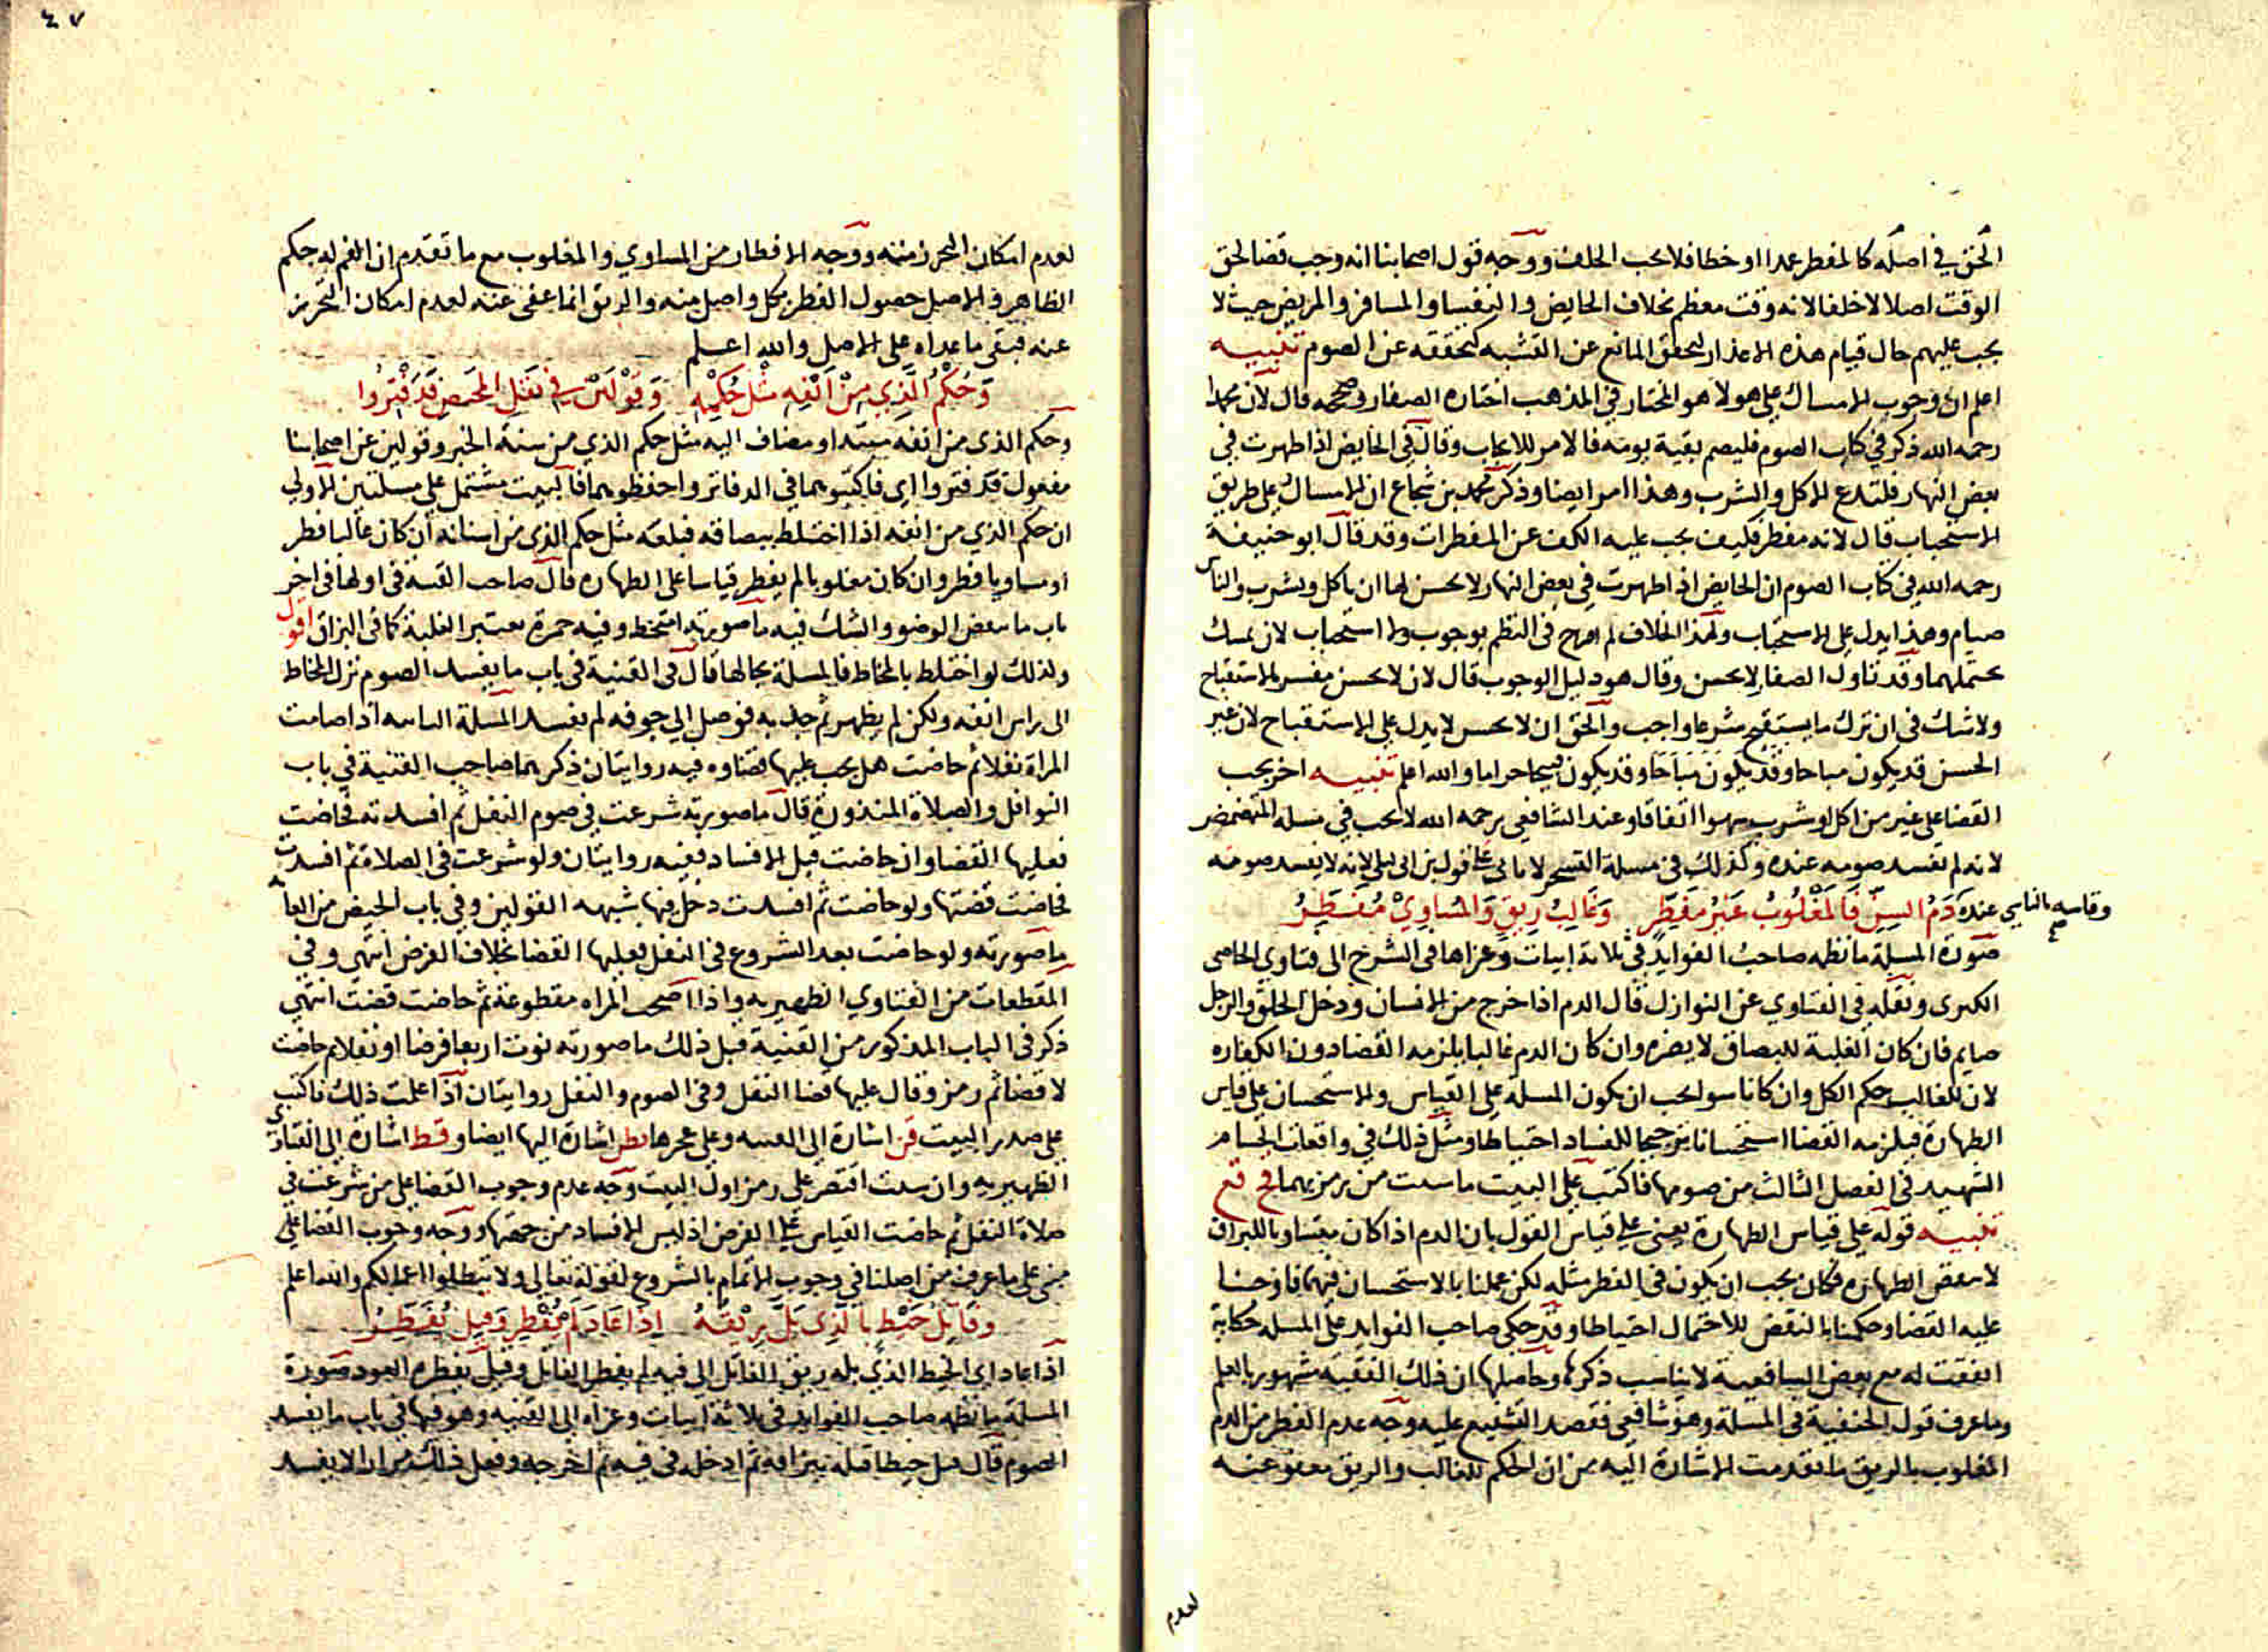 الحق في اصله كالمفطر عمدا او خطا فلا يجب الخلف ووجه قول اصحابنا انه وجب قضا لحق
الوقت اصلا لا خلفا لانه وقت معظم بخلاف الحايض والنفسا والمسافر والمريض حيث لا
يجب عليهم حال قيام هذه الاعذار لتحقق المانع عن التشبه كتحققه عن الصوم تنبيه
اعلم ان وجوب الامساك على هولا هو المختار في المذهب اختاره الصفار وصححه قال لان محمدا
رحمه الله ذكر في كتاب الصوم فليصم بقية يومه فالامر للايجاب وقال في الحايض اذا طهرت في
بعض النهار فلتدع الاكل والشرب وهذا امر ايضا وذكر محمد بن شجاع ان الامساك على طريق
الاستحباب قال لانه مفطر فكيف يجب عليه الكف عن المفطرات وقد قال ابو حنيفة
رحمه الله في كتاب الصوم ان الحايض اذا طهرت في بعض النهار لا يحسن لها ان ياكل ويشرب والناس
صيام وهذا يدل على الاستحباب ولهذا الخلاف لم اصرح في النظم بوجوب ولا استحباب لان يمسك
يحتملهما وقد تاول الصفار لا يحسن وقال هو دليل الوجوب قال لان لا يحسن مفسر بالاستقباح
ولا شك في ان ترك ما يستقبح شرعا واجب والحق ان لا يحسن لا يدل على الاستقباح لان غير
الحسن قد يكون مباحا وقد يكون قبيحا حراما والله اعلم تنبيه اخر يجب
القضا على غير من اكل او شرب سهوا اتفاقا وعند الشافعي رحمه الله لا يجب في مسله المتمضمض
لانه لم يفسد صومه عنده وكذلك في مسلة التسحر لا ياتي على قول بن ابي ليلى لانه لا يفسد صومه
وقاسه بالناسي عنده دم السن فالمغلوب غير مفطر وغالب ريق والمساوي مفطر
صورة المسلة ما نظمه صاحب الفوايد في ثلاثة ابيات وعزاها في الشرح الى فتاوي الخاصي
الكبرى ونقله في الفتاوي عن النوازل قال الدم اذا خرج من الاسنان ودخل الحلق والرجل
صايم فان كان الغلبة للبصاق لا يضره وان كان الدم غالبا يلزمه القضا دون الكفاره
لان للغالب حكم الكل وان كانا سوا يجب ان يكون المسلة على القياس والاستحسان على قياس
الطهارة فيلزمه القضا استحسانا ترجيحا للفساد احتياطا ومثل ذلك في واقعات الحسام
الشهيد في الفصل الثالث من صومها فاكتب على البيت ما شت من رمزيهما فخ قع
تنبيه قوله على قياس الطهارة يعني على قياس القول بان الدم اذا كان متساويا للبزاق
لا ينقض الطهاره فكان يجب ان يكون في الفطر مثله لكن عملنا بالاستحسان فيهما فاوجبنا
عليه القضا وحكمنا بالنقض للاحتمال احتياطا وقد حكى صاحب الفوايد على المسله حكاية
اتفقت له مع بعض الشافعية لا يناسب ذكرها وحاصلها ان ذلك الفقيه مشهور بالعلم
وما عرف قول الحنفية في المسلة وهو شافعي فقصد التشنيع عليه وجه عدم الفطر من الدم
المغلوب بالريق ما تقدمت الاشارة اليه من ان الحكم للغالب والريق معفو عنه
لعدم
٤٧
لعدم امكان التحرز منه ووجه الافطار من المساوي والمغلوب مع ما تقدم ان الفم له حكم
الظاهر والاصل حصول الفطر بكل واصل منه والريق انما عفى عنه لعدم امكان التحرز
عنه فبقى ما عداه على الاصل والله اعلم
وحكم الذي من انفه مثل حكمه وقولين في نفل المحيض قد فتروا
وحكم الذي من انفه مبتدا ومضاف اليه مثل حكم الذي من سنه الخبر وقولين عن اصحابنا
مفعول قد فتروا اي فاكتبوهما في الدفاتر واحفظوهما فالبيت مشتمل على مسلتين الاولى
ان حكم الذي من انفه اذا اختلط ببصاقه فبلعه مثل حكم الذي من اسنانه ان كان غالبا فطر
او مساويا فطر وان كان مغلوبا لم يفطر قياسا على الطهاره قال صاحب القنية في اولها في اخر
باب ما ينقض الوضو والشك فيه ما صورته امتخط وفيه حمرة يعتبر الغلبة كما في البزاق اقول
ولذلك لو اختلط بالمخاط فالمسلة بحالها قال في القنية في باب ما يفسد الصوم نزل المخاط
الى راس انفه ولكن لم يظهر ثم جذبه فوصل الى جوفه لم يفسد المسلة الثانيه اذا صامت
المراة نفلا ثم حاضت هل يجب عليها قضاوه فيه روايتان ذكرهما صاحب القنية في باب
النوافل والصلاة المنذورة قال ما صورته شرعت في صوم النفل ثم افسدته فحاضت
فعليها القضا وان حاضت قبل الافساد ففيه روايتان ولو شرعت في الصلاة ثم افسدت
فحاضت قضتها ولو حاضت ثم افسدت دخل فيها شبهه القولين وفي باب الحيض منها
ما صورته ولو حاضت بعد الشروع في النفل فعليها القضا بخلاف الفرض انتهى وفي
المقطعات من الفتاوي الظهيريه واذا اصبحت المراه متطوعة ثم حاضت قضت انتهى
ذكر في الباب المذكور من القنية قبل ذلك ما صورته نوت اربعا فرضا او نفلا ثم حاضت
لا قضا ثم رمز وقال عليها قضا النفل وفي الصوم والنفل روايتان اذا علمت ذلك فاكتب
على صدر البيت قن اشارة الى القنيه وعلى عجزها اشارة اليها ايضا وقط اشارة الى الفتاوى
الظهيريه وان شئت اقتصر على رمز اول البيت وجه عدم وجوب القضا على من شرعت في
صلاة النفل ثم حاضت القياس على الفرض اذ ليس الافساد من جهتها ووجه وجوب القضا على
مبني على ما عرف من اصلنا في وجوب الاتمام بالشروع لقوله تعالى ولا تبطلوا اعمالكم والله اعلم
وفاتل خيط بالذي بل ريقه اذا عاد لم يفطر وقيل يفطر
اذا عاد اي الخيط الذي بله ريق الفاتل الى فيه لم يفطر الفاتل وقيل يفطره العود صورة
المسلة ما نظمه صاحب الفوايد في ثلاثة ابيات وعزاه الى القنيه وهو فيها في باب ما يفسد
الصوم قال فتل خيطا فبله ببزاقه ثم ادخله في فيه ثم اخرجه وفعل ذلك مرارا لا يفسد